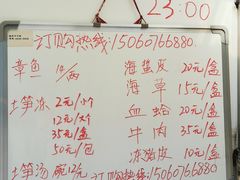 23:00
订购热线:15060766880
章鱼 10/两
土笋冻 2元/小个
12元/大个
35元/盒
50元/包
土笋汤 碗12元
海蜇皮 20元/盒
海草 15元/盒
血蛤 20元/盒
牛肉 35元/盒
冻猪皮 10元/盒
订购热线:15060766880